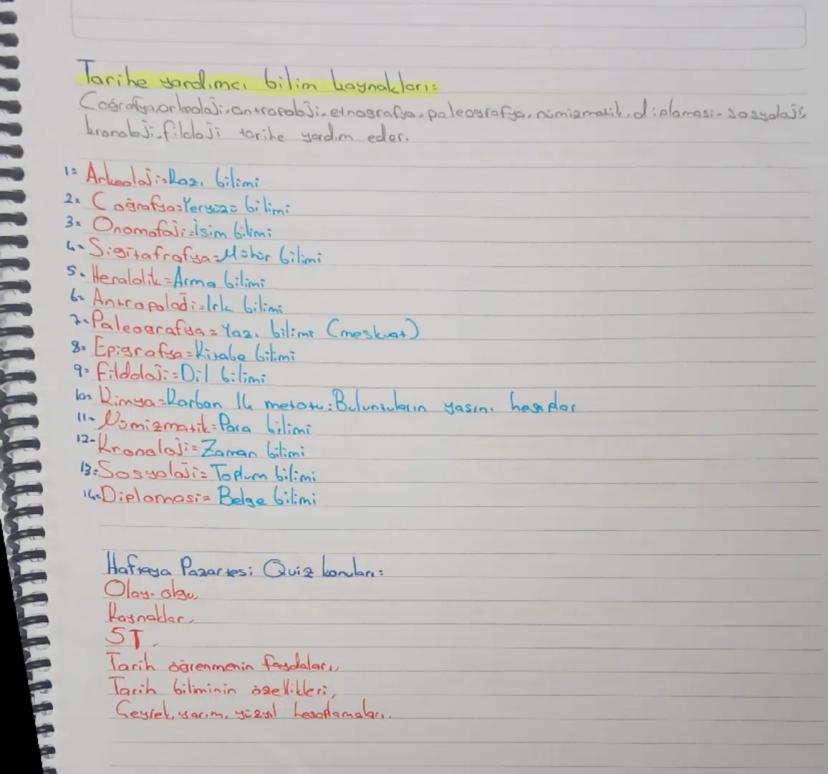 Tarihe yardımcı bilim kaynakları:
Coğrafya, arkeoloji, antropoloji, etnografya, paleografya, nümizmatik, diplomasi, sosyoloji,
kronoloji, filoloji tarihe yardım eder.
1- Arkeoloji=Kazı bilimi
2- Coğrafya=Yeryüzü bilimi
3- Onomofoji=İsim bilimi
4- Sigitafrafya=Mühür bilimi
5- Heraldik=Arma bilimi
6- Antropoloji=Irk bilimi
7- Paleografya=Yazı bilimi (meskvat)
8- Epigrafya=Kitabe bilimi
9- Filoloji=Dil bilimi
10- Kimya=Karbon 14 metotu: Buluntuların yaşını hesaplar
11- Nümizmatik=Para bilimi
12- Kronoloji=Zaman bilimi
13- Sosyoloji=Toplum bilimi
14- Diplomasi=Belge bilimi
Haftaya Pazartesi Quiz konuları:
Olay-olgu,
Kaynaklar,
5T,
Tarih öğrenmenin faydaları,
Tarih biliminin özellikleri,
Çeyrek, yarım, yüzyıl hesaplamaları.